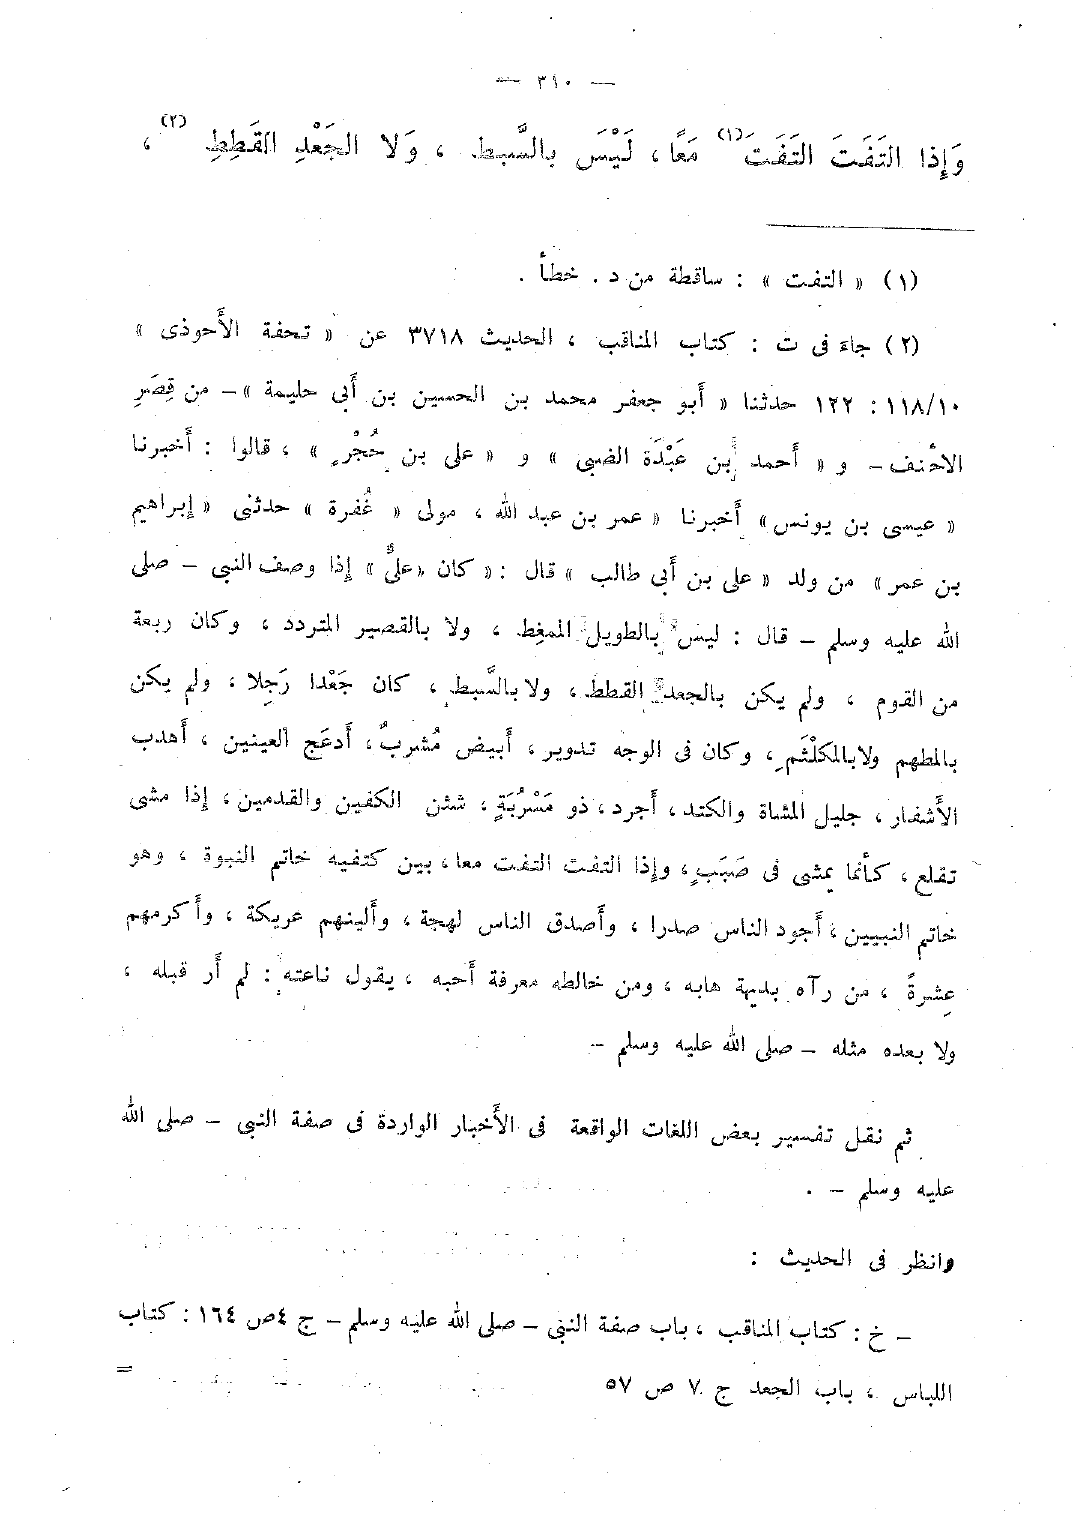 — ٣١٠ —
وَإِذا التَفَتَ التَفَتَ (١) مَعًا ، لَيْسَ بالسَّبط ، وَلا الجَعْدِ القَطِطِ (٢) ،
(١) « التفت » : ساقطة من د . خطأ .
(٢) جاء فى ت : كتاب المناقب ، الحديث ٣٧١٨ عن « تحفة الأَحوذى »
١١٨/١٠ : ١٢٢ حدثنا « أَبو جعفر محمد بن الحسين بن أَبى حليمة » – من قِصَرِ
الأحْنف – و « أَحمد بن عَبْدَة الضبى » و « على بن حُجْرٍ » ، قالوا : أَخبرنا
« عيسى بن يونس » أَخبرنا « عمر بن عبد الله ، مولى « غُفرة » حدثنى « إِبراهيم
بن عمر » من ولد « على بن أَبى طالب » قال : « كان « علىٌّ » إِذا وصف النبى – صلى
الله عليه وسلم – قال : ليس بالطويل الممغِط ، ولا بالقصير المتردد ، وكان ربعة
من القوم ، ولم يكن بالجعد القطط ، ولا بالسَّبط ، كان جَعْدا رَجِلا ، ولم يكن
بالمطهم ولا بالمكلْثَمِ ، وكان فى الوجه تدوير ، أَبيض مُشربٌ ، أَدعَج العينين ، أَهدب
الأَشفار ، جليل المشاة والكتد ، أَجرد ، ذو مَسْرُبَةٍ ، شئن الكفين والقدمين ، إِذا مشى
تقلع ، كأَنما يمشى فى صَبَبٍ ، وإِذا التفت التفت معا ، بين كتفيه خاتم النبوة ، وهو
خاتم النبيين ، أَجود الناس صدرا ، وأَصدق الناس لهجة ، وأَلينهم عريكة ، وأَكرمهم
عِشرةً ، من رآه بديهة هابه ، ومن خالطه معرفة أَحبه ، يقول ناعته : لم أَر قبله ،
ولا بعده مثله – صلى الله عليه وسلم –
ثم نقل تفسير بعض اللغات الواقعة فى الأَخبار الواردة فى صفة النبى – صلى الله
عليه وسلم – .
وانظر فى الحديث :
– خ : كتاب المناقب ، باب صفة النبى – صلى الله عليه وسلم – ج ٤ ص ١٦٤ : كتاب
اللباس ، باب الجعد ج ٧ ص ٥٧ =